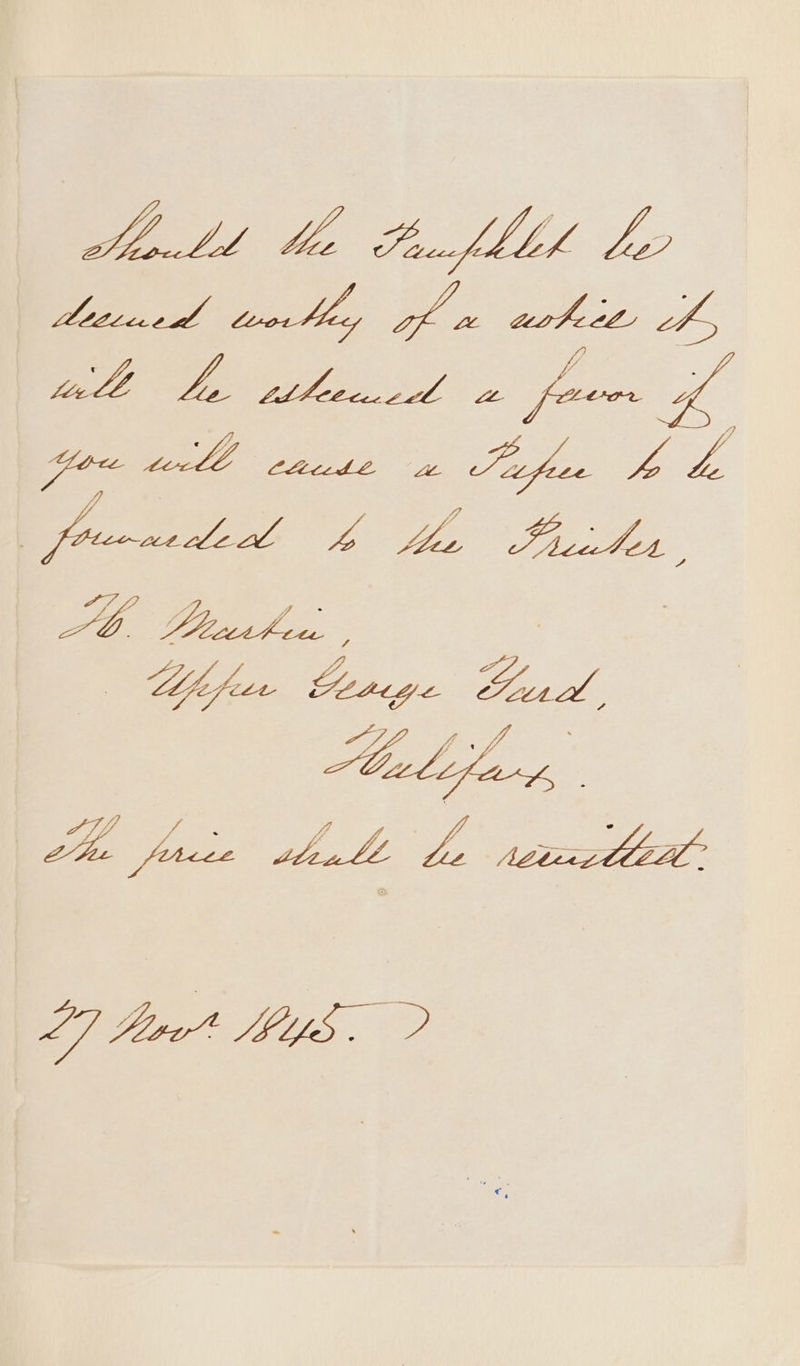 Should the Pamphlet be
deemed worthy of a notice it
will be esteemed a favor if
you will cause a Paper to be
forwarded to the Printer,
H. Martin,
Upper George Yard,
Halifax.
The price shall be remitted.
27 Novr 1845.